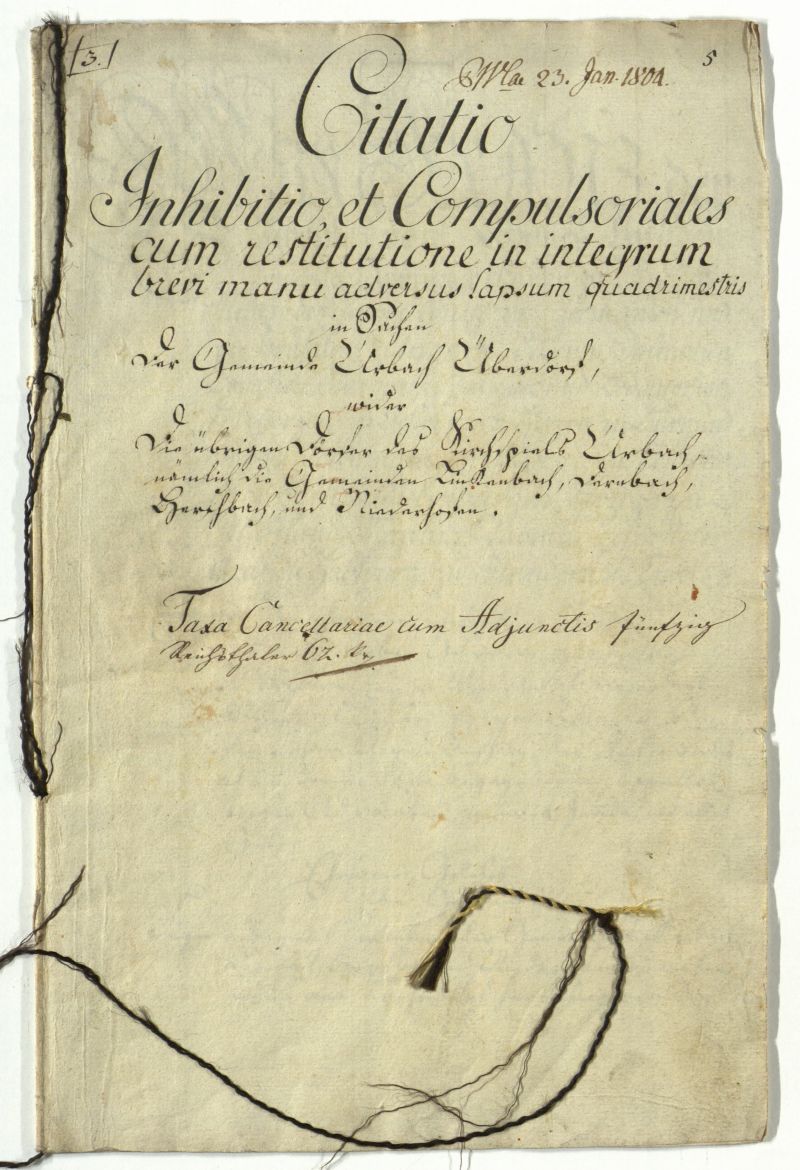 3.
5
Wlae 23. Jan. 1804.
Citatio
Inhibitio, et Compulsoriales
cum restitutione in integrum
brevi manu adversus lapsum quadrimestris
in Sachen
Der Gemeinde Urbach Überdorf,
wider
Die übrigen Dörfer des Kirchspiels Urbach,
nämlich die Gemeinden Linkenbach, Dernbach,
Harschbach, und Niederhofen.
Taxa Cancellariae cum Adjunctis fünfzig
Reichsthaler 62. kr.